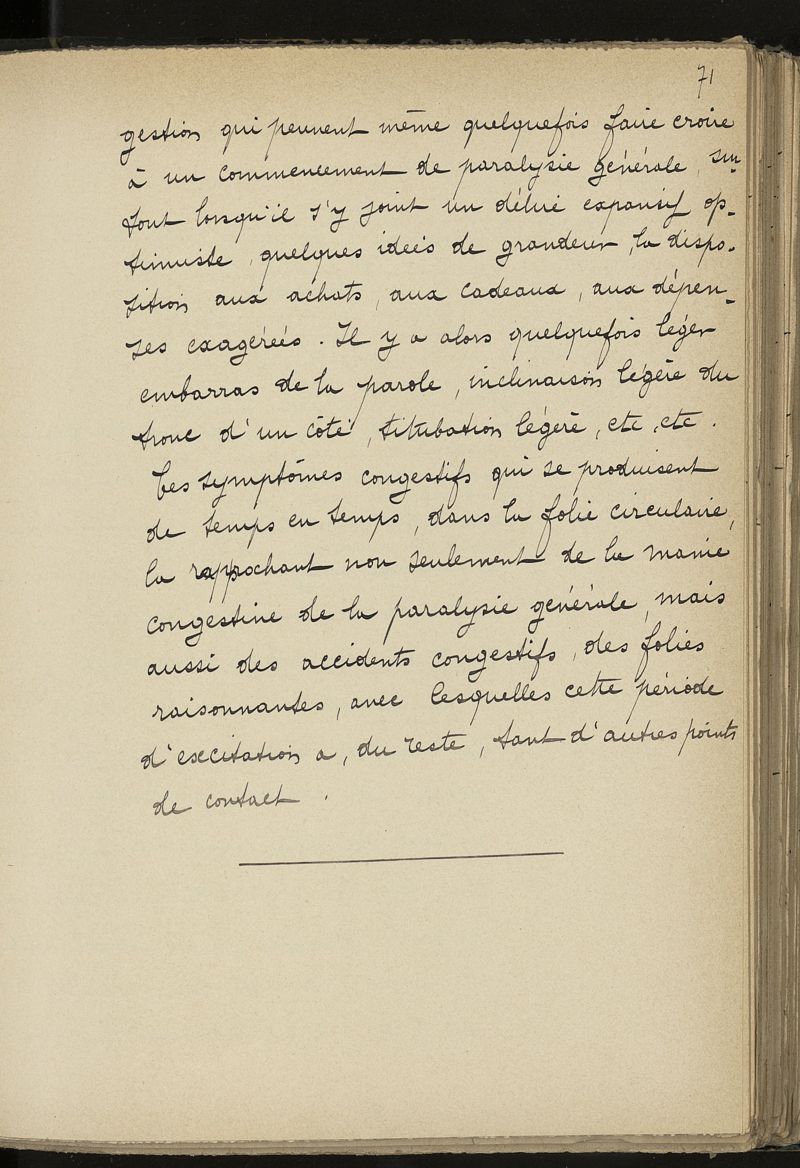 71
gestion qui peuvent même quelquefois faire croire
à un commencement de paralysie générale, sur-
tout lorsqu'il s'y joint un délire expansif op-
timiste, quelques idées de grandeur, la dispo-
sition aux achats, aux cadeaux, aux dépen-
ses exagérées. Il y a alors quelquefois léger
embarras de la parole, inclinaison légère du
tronc d'un côté, titubation légère, etc, etc.
Ces symptômes congestifs qui se produisent
de temps en temps, dans la folie circulaire,
la rapprochant non seulement de la manie
congestive de la paralysie générale, mais
aussi des accidents congestifs, des folies
raisonnantes, avec lesquelles cette période
d'excitation a, du reste, tant d'autres points
de contact.